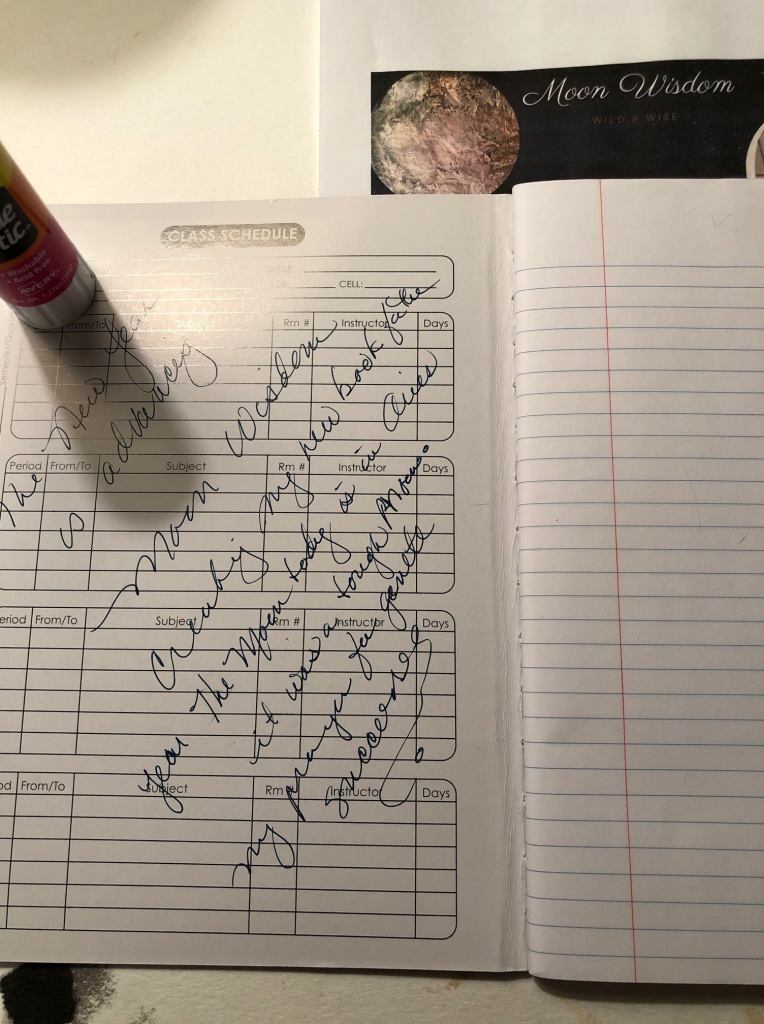 Moon Wisdom
WILD & WISE
tic.
Washable
Acid Free
AVERY
CLASS SCHEDULE
CELL:
From/To Subject Rm # Instructor Days
Period From/To Subject Rm # Instructor Days
eriod From/To Subject Rm # Instructor Days
od From/To Subject Rm # Instructor Days
The New Year
is advancing
Moon Wisdom
Creating my new book for the
year The Moon today is in Aries
it was a tough Moon.
my prayer for gentle
successes